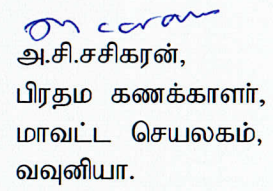 அ.சி.சசிகரன்,
பிரதம கணக்காளர்,
மாவட்ட செயலகம்,
வவுனியா.